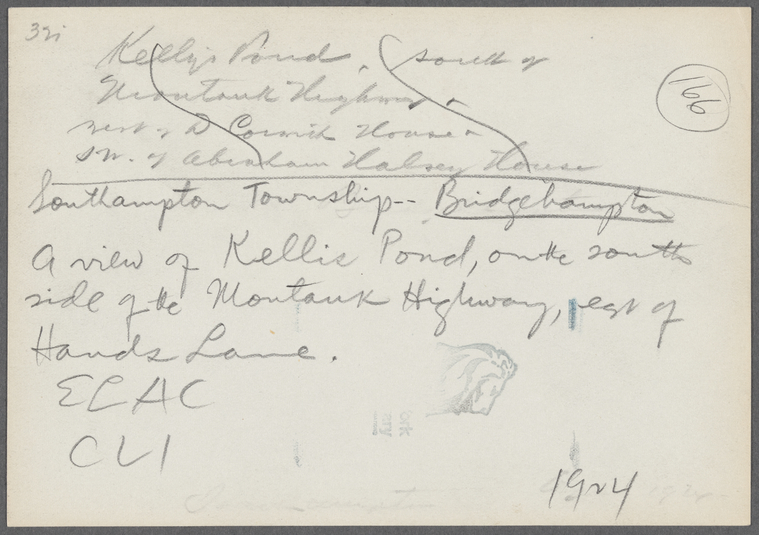 32i
Kellis Pond, south of
Montauk Highway,
west of D Corwith House,
sw. of Abraham Halsey House
166
Southampton Township-- Bridgehampton
A view of Kellis Pond, on the south
side of the Montauk Highway, east of
Hands Lane.
ECAC
CLI
1924